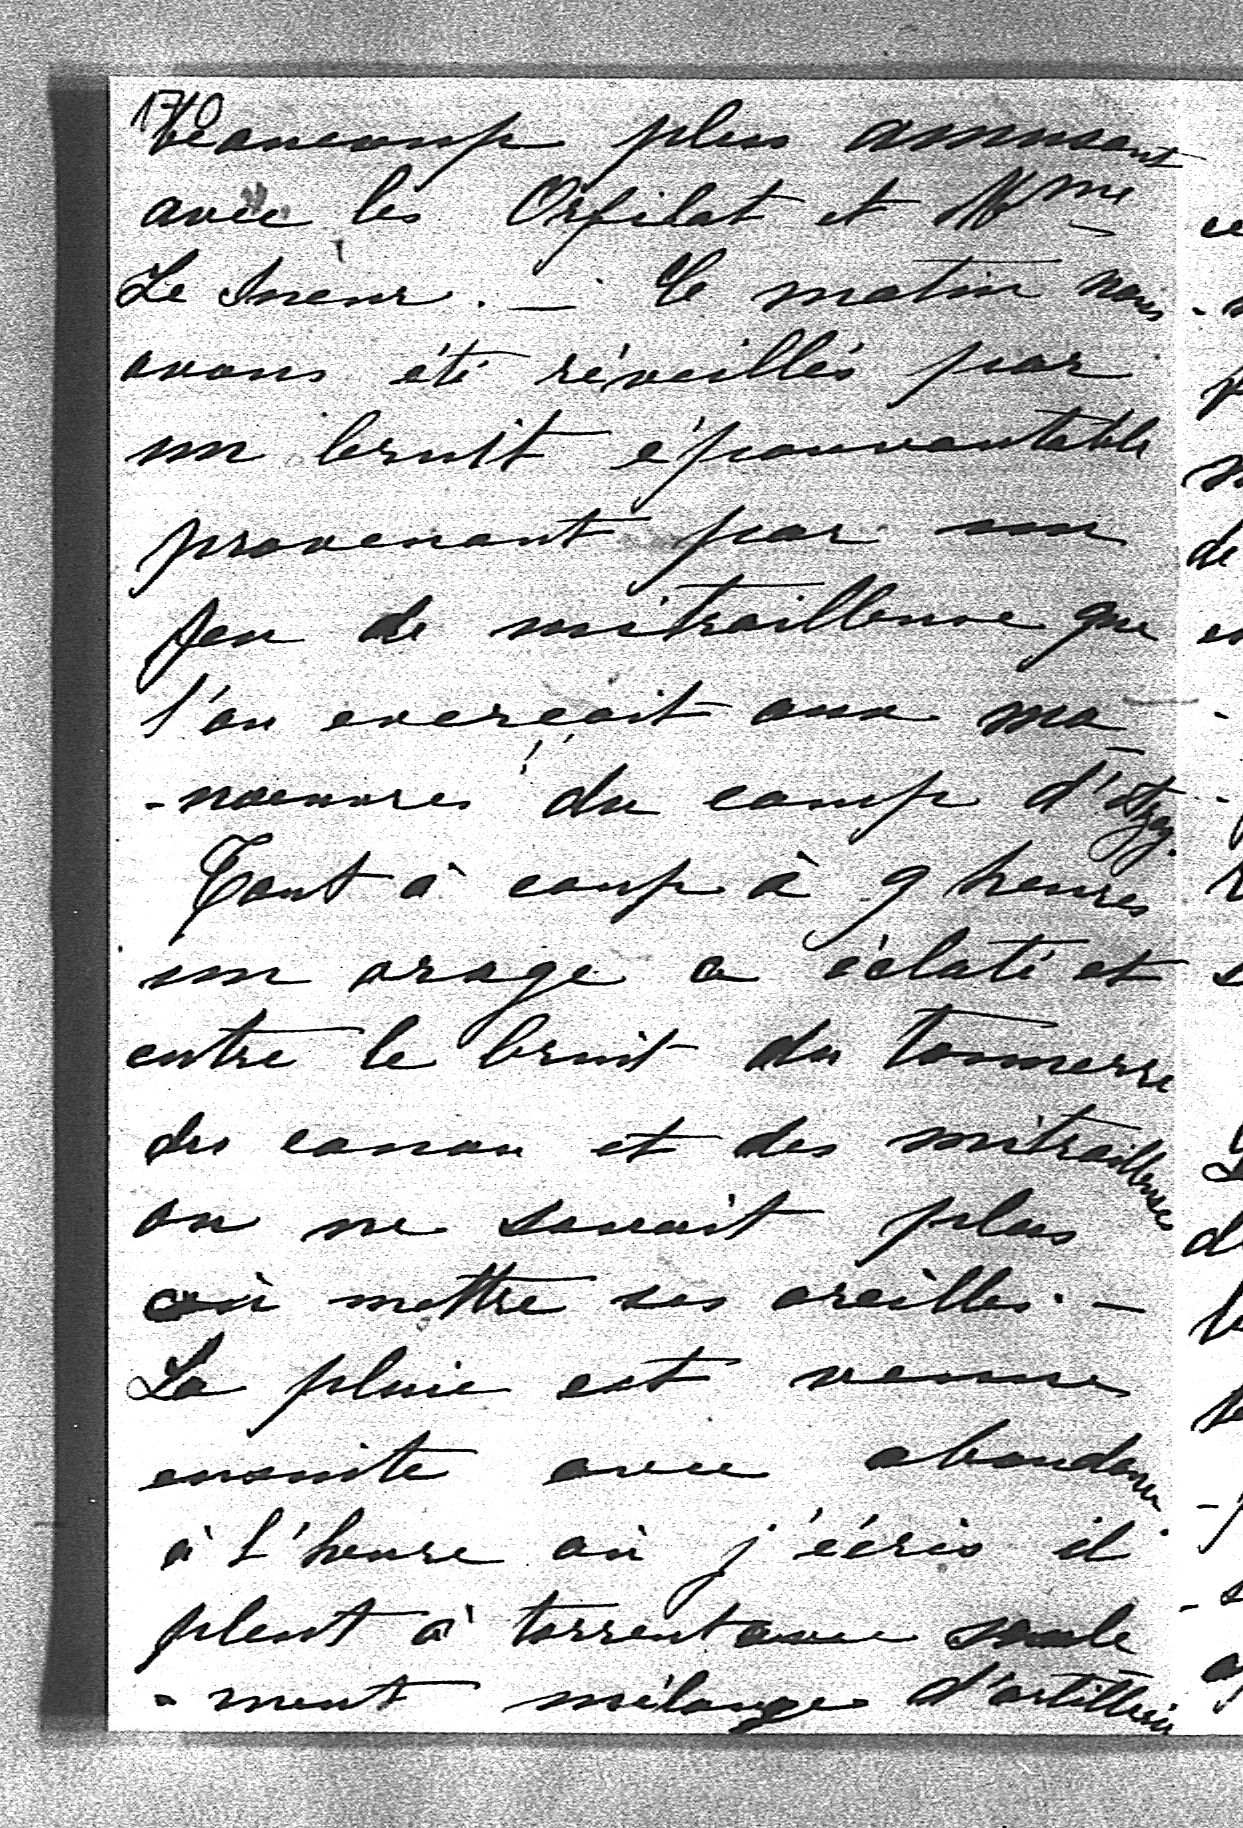 170
beaucoup plus amusant
avec les Orfilat et Mme
Le Sueur. — Ce matin nous
avons été réveillés par
un bruit épouvantable
provenant par un
feu de mitrailleuse que
l'on exerçait aux ma
-noeuvres du camp
Tout à coup à 9 heures
un orage a éclaté et
entre le bruit du tonnerre
des canon et des mitrailleuse
on ne savait plus
où mettre ses oreilles. —
La pluie est venue
ensuite avec abondance
à l'heure où j'écris il
pleut à torrent avec seule
-ment mélange d'artillerie